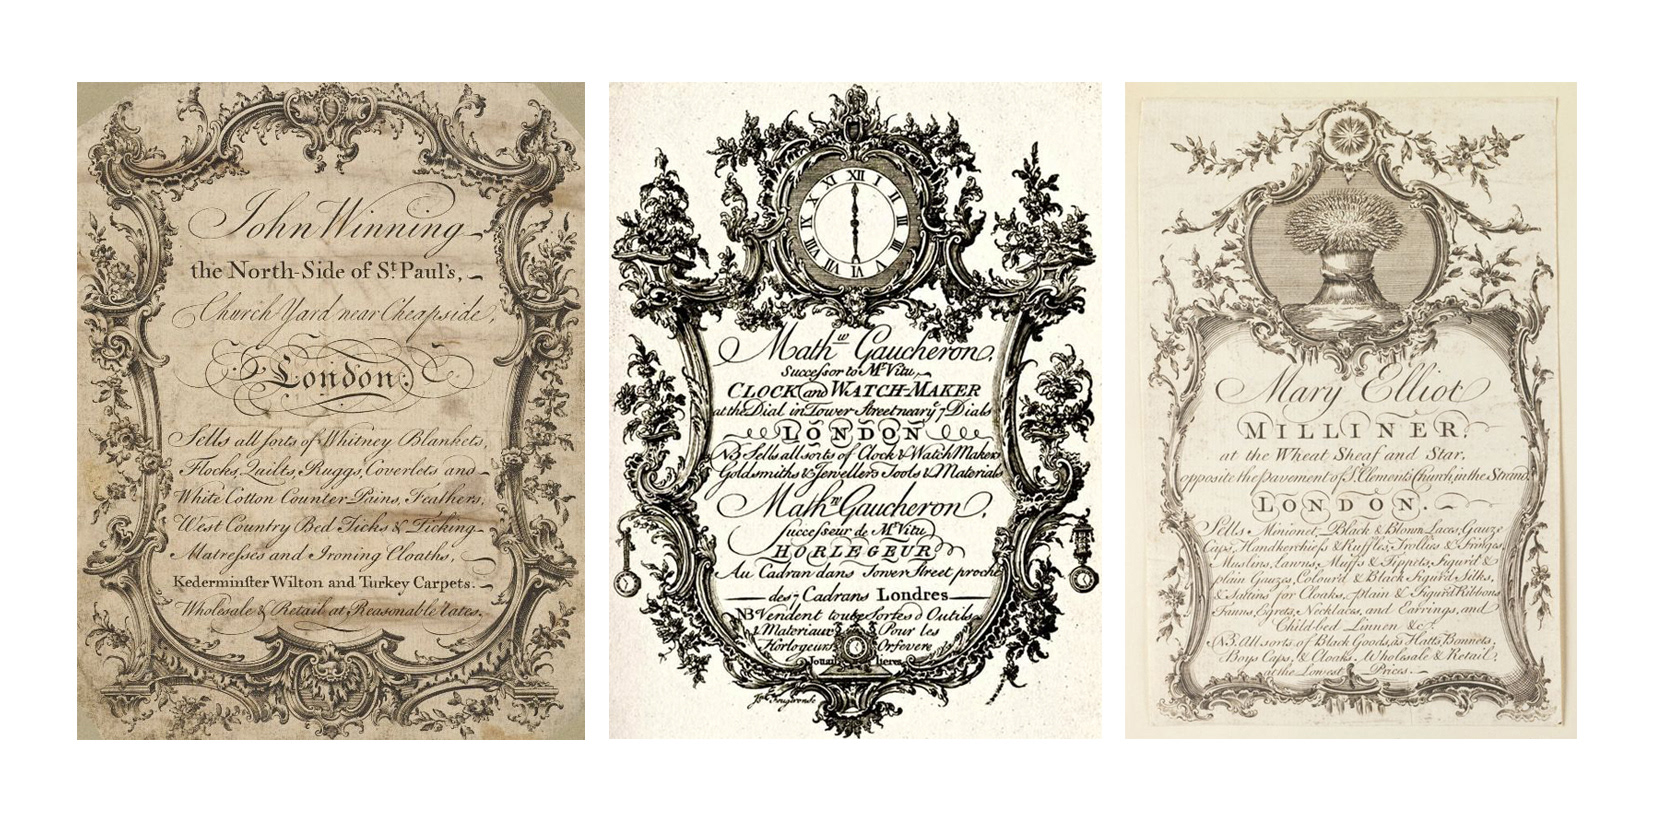 John Winning
the North-Side of St. Paul's,
Church Yard near Cheapside,
London.
Sells all sorts of Whitney Blankets,
Flocks, Quilts, Ruggs, Coverlets and
White Cotton Counter-Pains, Feathers,
West Country Bed Ticks & Ticking
Matresses and Ironing Cloaths,
Kederminster Wilton and Turkey Carpets.
Wholesale & Retail at Reasonable rates.
XII I II III IIII V VI VII VIII IX X XI
Mathw. Gaucheron,
Successor to Mr. Vitu,
CLOCK and WATCH-MAKER
at the Dial in Tower Street near ye 7 Dials
LONDON
NB Sells all sorts of Clock & Watch Makers
Goldsmiths & Jewellers Tools & Materials
Mathw. Gaucheron,
successeur de Mr. Vitu
HORLEGEUR
Au Cadran dans Tower Street proche
des 7 Cadrans Londres
NB Vendent toute Sortes d Outils
& Materiaux Pour les
Horlogeurs Orfevere
Jouail lieres
Mary Elliot
MILLINER,
at the Wheat Sheaf and Star,
opposite the pavement of St. Clements Church, in the Strand,
LONDON.
Sells Minionet, Black & Blown Laces, Gauze
Caps, Handkerchiefs & Ruffles, Trollies & Fringes,
Muslins, Lawns, Muffs & Tippets, Figur'd &
plain Gauzes, Colour'd & Black Figur'd Silks,
& Sattins for Cloaks, plain & Figur'd Ribbons
Egrets, Necklaces, and Earrings, and
Child-bed Linnen &c.
NB. All sorts of Black Goods, as Hatts, Bonnets,
Boys Caps, & Cloaks. Wholesale & Retail,
at the Lowest Prices.